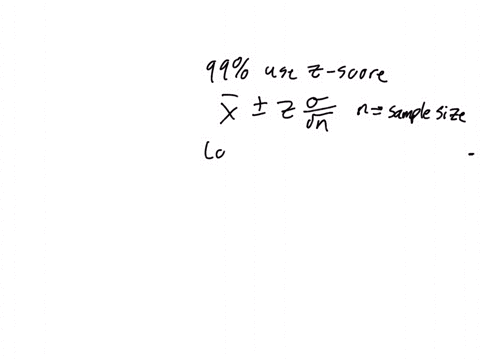 99% use z-score
x̄ ± z σ/√n n = sample size